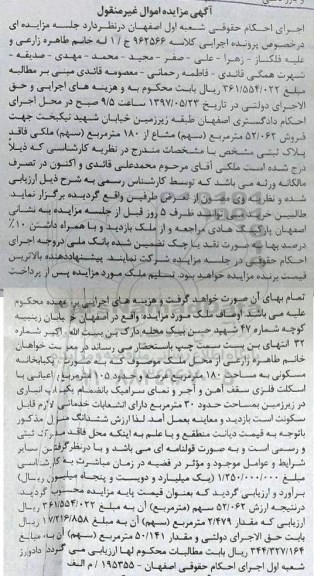 آگهی مزایده اموال غیرمنقول
اجرای احکام حقوقی شعبه اول اصفهان درنظردارد جلسه مزایده ای
درخصوص پرونده اجرایی کلاسه ۹۶۳۵۶۶ ج / ۱ له خانم طاهره زارعی و
علیه فلکناز - زهرا - علی - صفر - مجید - محمد - مهدی - صدیقه -
شهرت همگی قائدی - فاطمه رحمانی - معصومه قائدی مبنی بر مطالبه
مبلغ ۳۶۱/۵۵۴/۰۲۲ ریال بابت محکوم به و هزینه های اجرایی و حق
الاجرای دولتی در تاریخ ۱۳۹۷/۰۵/۲۲ ساعت ۹/۵ صبح در محل اجرای
احکام دادگستری اصفهان طبقه زیرزمین خیابان شهید نیکبخت جهت
فروش ۵۲/۰۶۲ مترمربع (سهم) مشاع از ۱۸۰ مترمربع (سهم) ملکی فاقد
پلاک ثبتی مشخص با مشخصات مندرج در نظریه کارشناسی که ذیلاً
درج شده است ملکی آقای مرحوم محمدعلی قائدی و اکنون در تصرف
مالکانه ورثه می باشد که توسط کارشناس رسمی به شرح ذیل ارزیابی
شده و نظریه وی مصون از تعرض طرفین واقع گردیده برگزار نماید.
طالبین خرید می توانند ظرف ۵ روز قبل از جلسه مزایده به نشانی
اصفهان پارکینگ هادی مراجعه و از ملک بازدید و با همراه داشتن ۱۰٪
درصد بها به صورت نقد یا چک تضمین شده بانک ملی دروجه اجرای
احکام حقوقی در جلسه مزایده شرکت نمایند. پیشنهاددهنده بالاترین
قیمت برنده مزایده خواهد بود. تسلیم ملک مورد مزایده پس از پرداخت
تمام بهای آن صورت خواهد گرفت و هزینه های اجرایی بر عهده محکوم
علیه می باشد اوصاف ملک مورد مزایده واقع در اصفهان خیابان زینبیه
کوچه شماره ۴۷ شهید حسن بیک محله دارک بن بیت الله اکبر شماره
۳۲ انتهای بن بست سمت چپ باستحضار می رساند در معیت خواهان
خانم طاهره زارعی از محل ملک موصوف که به صورت یکبابخانه
مسکونی به مساحت ۱۸۰ مترمربع عرصه و حدود ۱۰۵ مترمربع اعیانی با
اسکلت فلزی سقف آهن و آجر و نمای سرامیک بانضمام یکباب انباری
در زیرزمین بمساحت حدود ۳۰ مترمربع دارای انشعابات خدماتی لازم قابل
سکونت است بازدید و معاینه بعمل آمد لذا ارزش ششدانگ منزل مذکور
باتوجه به قیمت دیانت منطقه و با علم به اینکه محل فاقد مدرک ثبتی
و رسمی است و به صورت قولنامه ای می باشد و با درنظرگرفتن سایر
شرایط و عوامل موجود و مؤثر در قضیه در زمان مباشرت به کارشناسی
۱/۲۵۰/۰۰۰/۰۰۰ ریال (یک میلیارد و دویست و پنجاه میلیون ریال)
برآورد و ارزیابی گردید که بعنوان قیمت پایه مزایده محسوب گردید.
درنتیجه ارزش ۵۲/۰۶۲ سهم (مترمربع) آن به مبلغ ۳۶۱/۵۵۴/۰۲۲ ریال
ارزیابی که مقدار ۲/۴۷۹ مترمربع (سهم) آن به مبلغ ۱۷/۲۱۶/۸۵۸ ریال
بابت حق الاجرای دولتی و مقدار ۵۰/۱۴۱ مترمربع (سهم) آن به مبلغ
۳۴۴/۳۲۷/۱۶۴ ریال بابت مطالبات محکوم لها ارزیابی می گردد. دادورز
شعبه اول اجرای احکام حقوقی اصفهان - ۱۹۵۳۵۵ / م الف